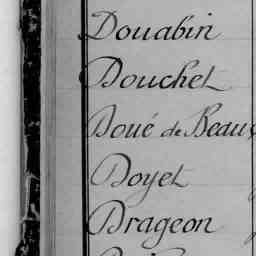 Douabin
Douchet
Doué de Beau
Doyet
Drageon